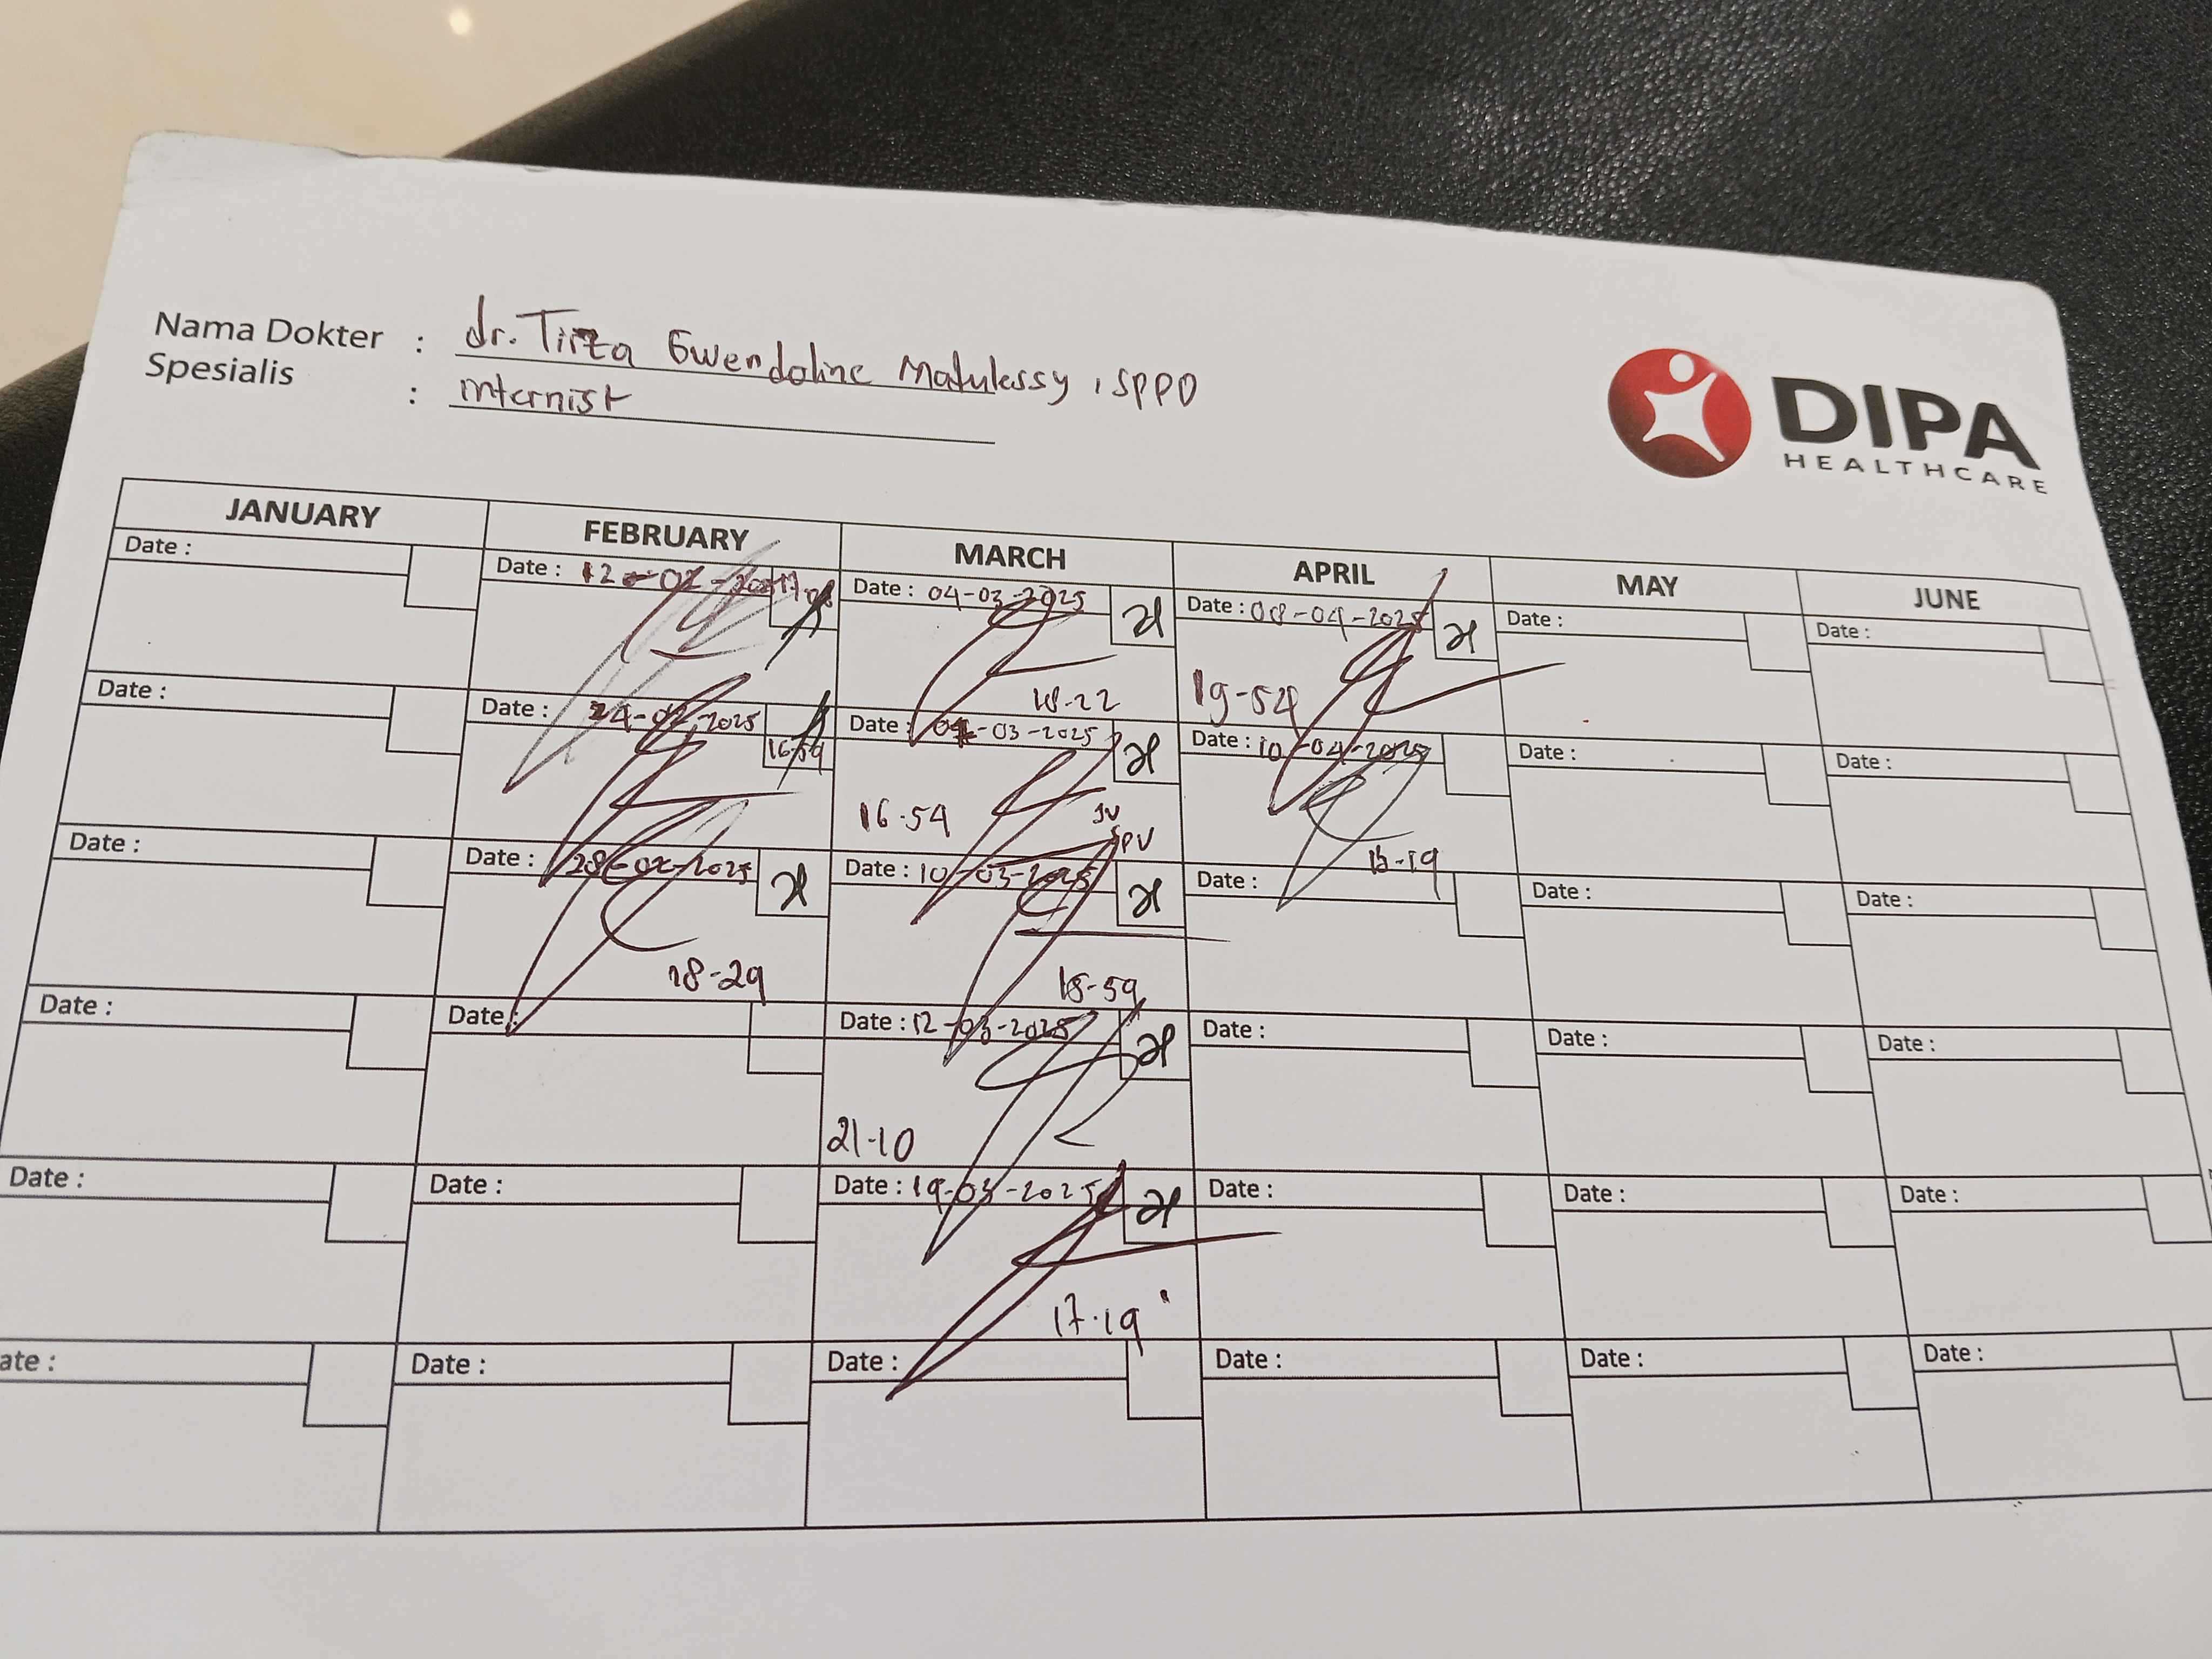 Nama Dokter : dr. Tirza Gwendoline Matulessy, SPPD
Spesialis : internist
DIPA
HEALTHCARE
JANUARY FEBRUARY MARCH APRIL MAY JUNE
Date : Date : 12-02- Date : 04-03-2025 Date : 08-04-2025 Date : Date :
18-22 19-54
Date : Date : 24-02-2025 16-59 Date : 07-03-2025 Date : 10-04-2025 Date : Date :
16-54 JV SPV 15-19
Date : Date : 28-02-2025 Date : 10-03-2025 Date : Date : Date :
18-29 18-59
Date : Date : Date : 12-03-2025 Date : Date : Date :
21-10
Date : Date : Date : 19-03-2025 Date : Date : Date :
17.19
ate : Date : Date : Date : Date : Date :